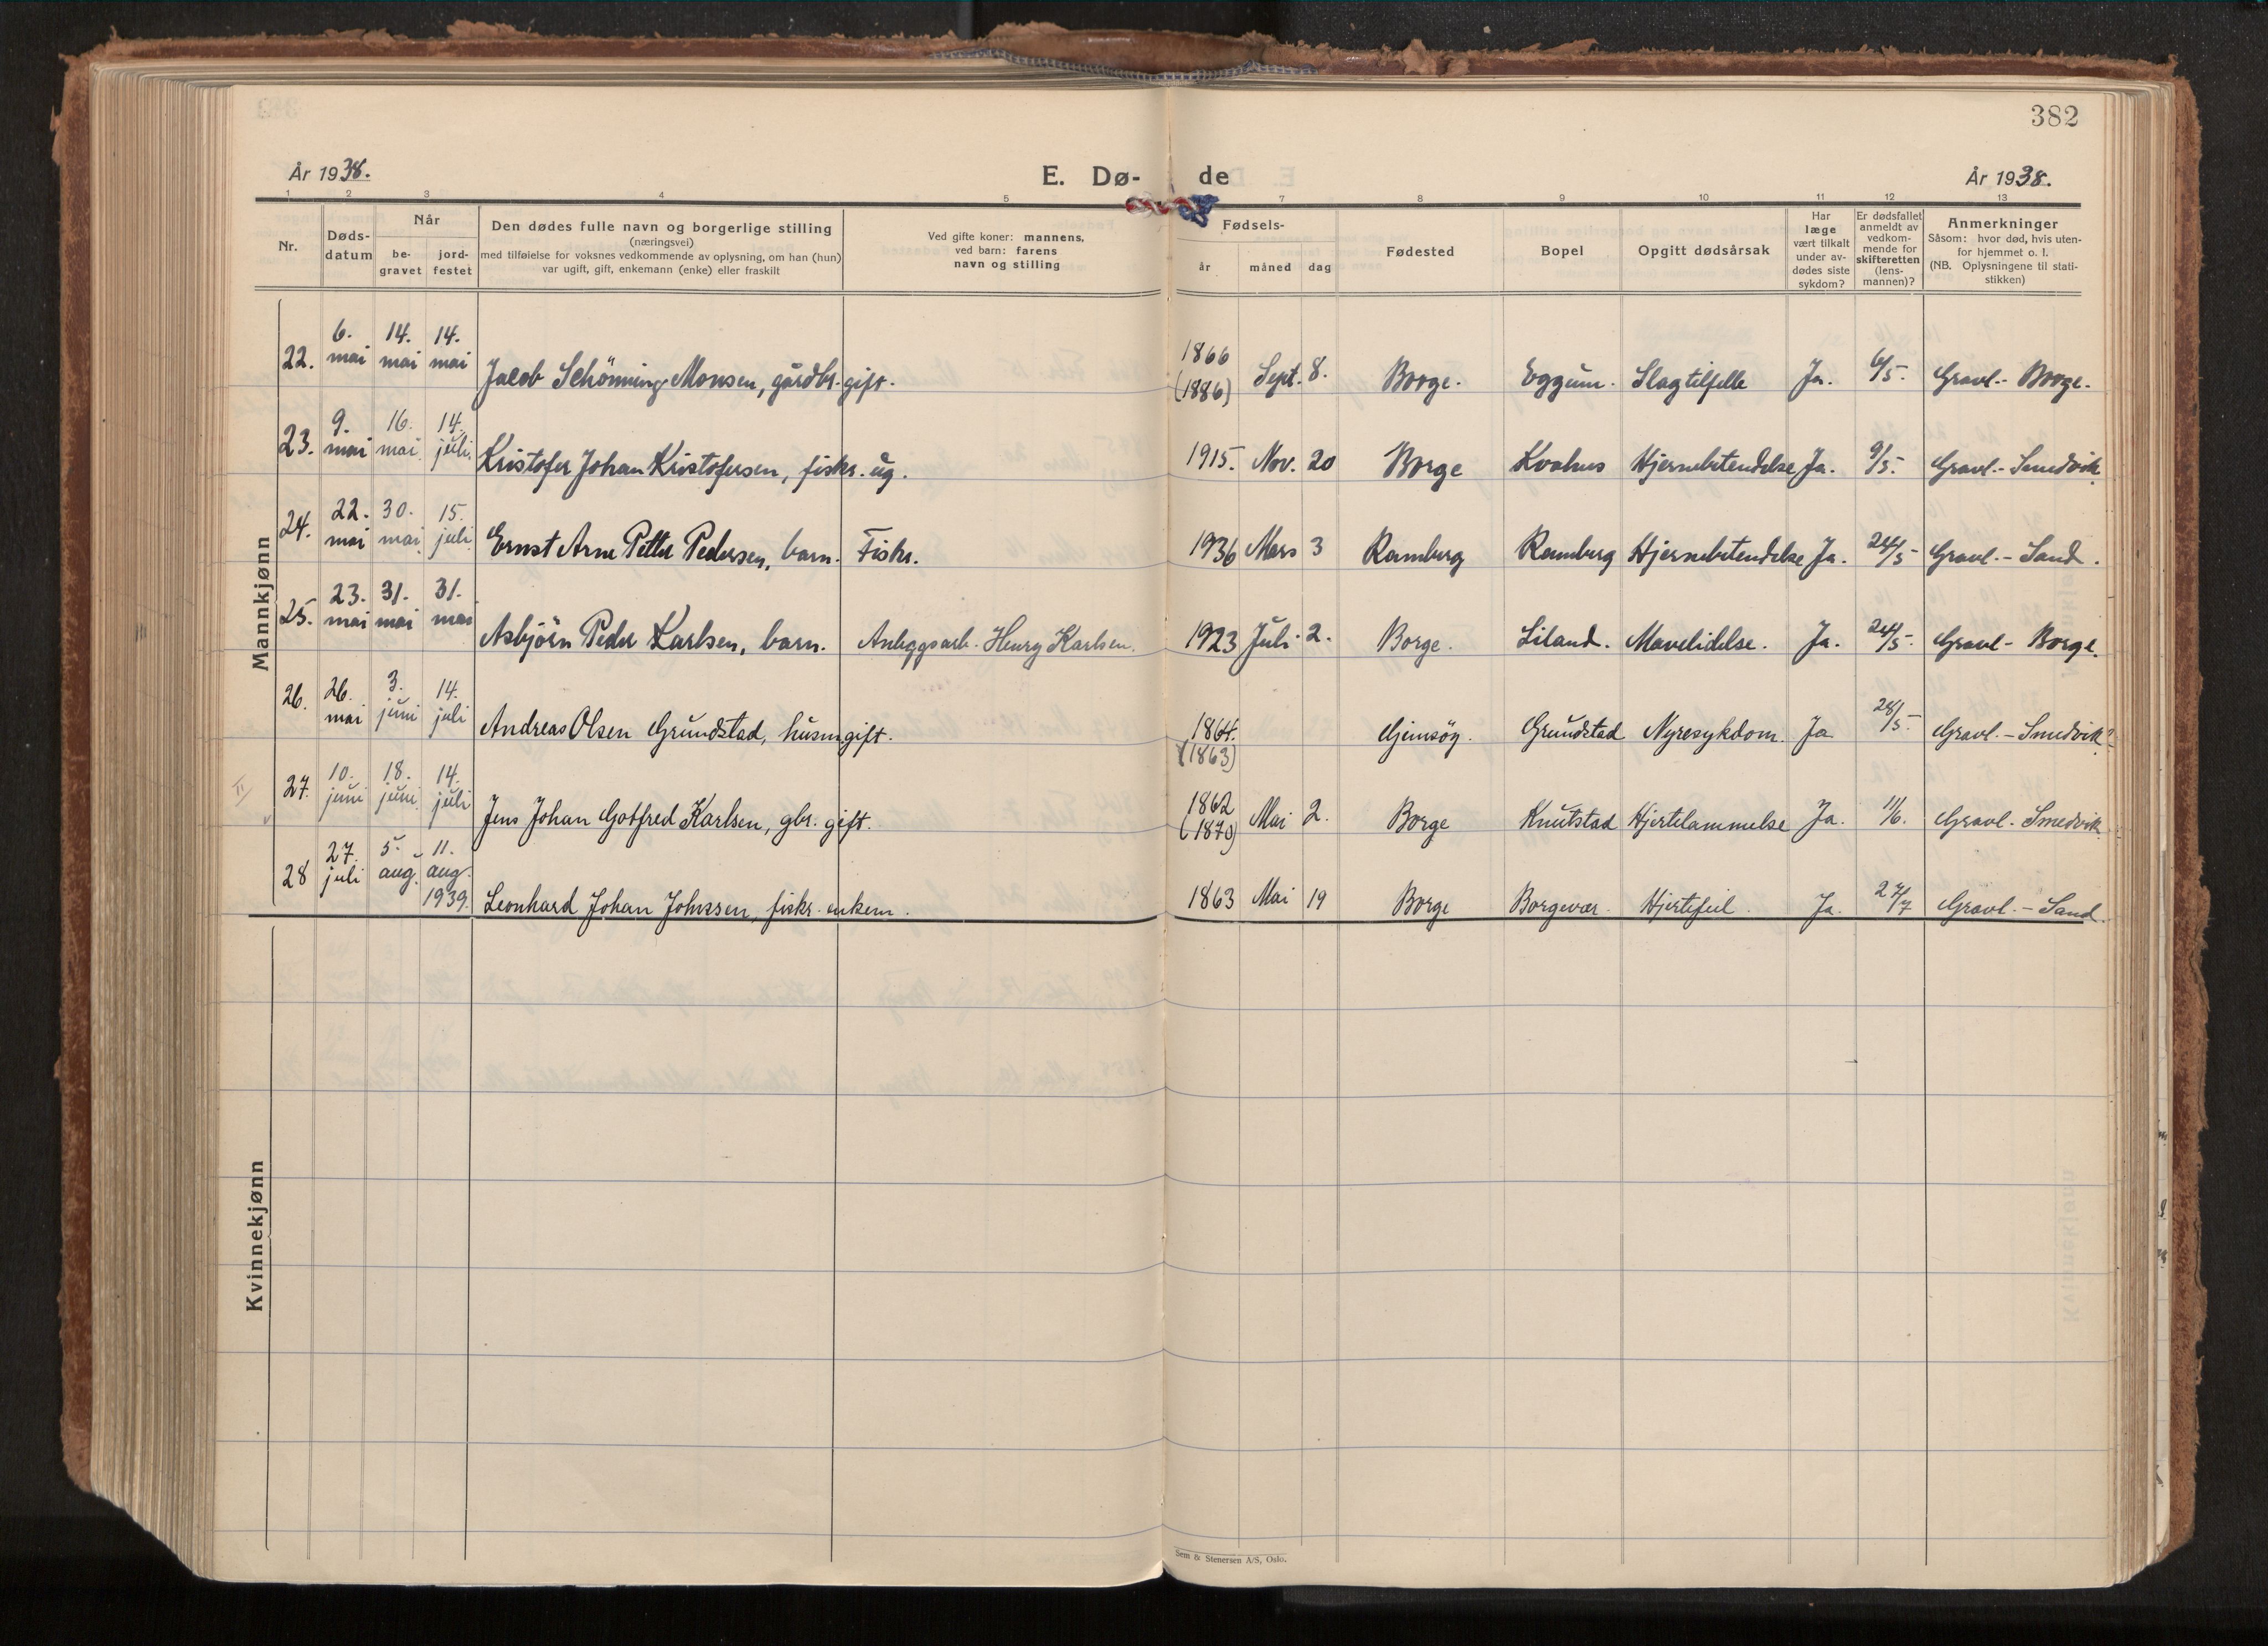 382
År 1938.
E. Dø-
de
År 1938.
1 2 3 4 5 7 8 9 10 11 12 13
Nr.
Døds-
datum
Når
be-
gravet
jord-
festet
Den dødes fulle navn og borgerlige stilling
(næringsvei)
med tilføielse for voksnes vedkommende av oplysning, om han (hun)
var ugift, gift, enkemann (enke) eller fraskilt
Ved gifte koner: mannens,
ved barn: farens
navn og stilling
Fødsels-
år måned dag
Fødested
Bopel
Opgitt dødsårsak
Har
læge
vært tilkalt
under av-
dødes siste
sykdom?
Er dødsfallet
anmeldt av
vedkom-
mende for
skifteretten
(lens-
mannen)?
Anmerkninger
Såsom: hvor død, hvis uten-
for hjemmet o. l.
(NB. Oplysningene til stati-
stikken)
Mannkjønn
22. 6. mai 14. mai 14. mai Jacob Schönning Monsen, gårdbr. gift. 1866 (1886) Sept. 8. Borge. Eggum. Slagtilfelle Ja. 6/5. Gravl. - Borge.
23. 9. mai 16. mai 14. juli. Kristofer Johan Kristofersen, fiskr. ug. 1915. Nov. 20 Borge Kvahus Hjernebetendelse Ja. 9/5. Gravl. - Smedvik.
24. 22. mai 30. mai 15. juli Ernst Arne Petter Pedersen, barn. Fiskr. 1936 Mars 3 Ramberg Ramberg Hjernebetendelse Ja. 24/5 Gravl. - Sand.
25. 23. mai 31. mai 31. mai Asbjörn Peder Karlsen, barn. Anleggsarb. Henry Karlsen. 1923 Juli 2. Borge. Liland. Mavelidelse. Ja. 24/5. Gravl - Borge.
26. 26. mai 3. juni 14. juli Andreas Olsen Grundstad, husm gift. 1864. (1863) Gjemsöy. Grundstad Nyresykdom. Ja 28/5 Gravl. - Smedvik.
27. 10. juni 18. juni 14. juli Jens Johan Gotfred Karlsen, gbr. gift. 1862 (1870) Mai 2. Borge Knutstad Hjertelammelse Ja. 11/6. Gravl. Smedvik.
28 27. juli 5. aug. 11. aug. 1939. Leonhard Johan Johnssen, fiskr. enkem. 1863 Mai 19 Borge Borgevær. Hjertefeil. Ja. 27/7 Gravl. - Sand.
Kvinnekjønn
Sem & Stenersen A/S, Oslo.